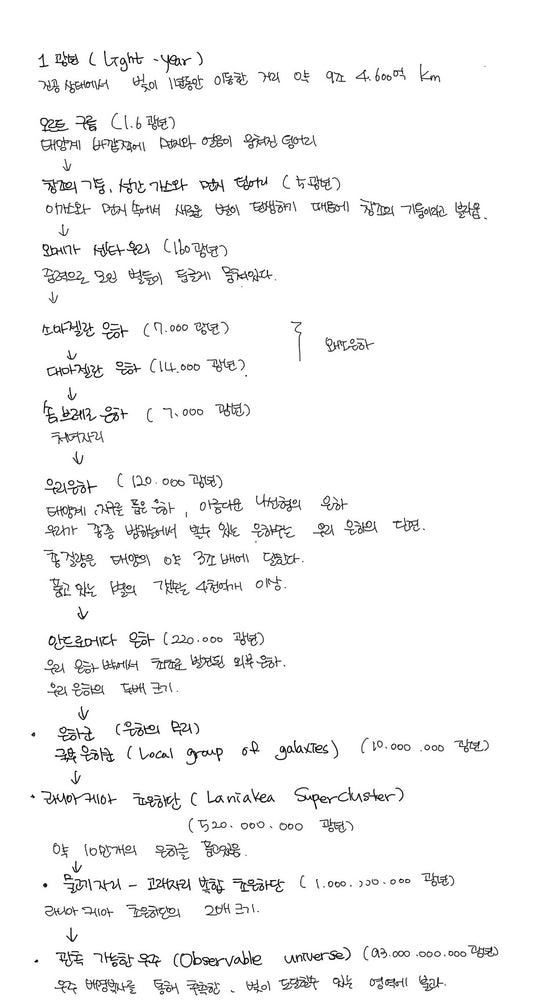 1 광년 (light-year)
진공 상태에서 빛이 1년동안 이동한 거리 약 9조 4.600억 km
오르트 구름 (1.6 광년)
태양계 바깥쪽에 먼지와 얼음이 뭉쳐진 덩어리
↓
창조의 기둥, 성간 가스와 먼지 덩어리 (5광년)
이가스와 먼지 속에서 새로운 별이 탄생하기 때문에 창조의 기둥이라고 불리움.
↓
오메가 센타우리 (160 광년)
중력으로 모인 별들이 둥글게 뭉쳐있다.
↓
소마젤란 은하 (7.000 광년)
↓
왜소은하
대마젤란 은하 (14.000 광년)
↓
솜브레로 은하 (7.000 광년)
처녀자리
↓
우리은하 (120.000 광년)
태양계, 지구를 품은 은하, 아름다운 나선형의 은하
우리가 종종 밤하늘에서 볼수 있는 은하수는 우리 은하의 단면.
총 질량은 태양의 약 3조 배에 달한다.
품고 있는 별의 갯수는 4천억개 이상.
↓
안드로메다 은하 (220.000 광년)
우리 은하 밖에서 최초로 발견된 외부 은하.
우리 은하의 두배 크기.
↓
• 은하군 (은하의 무리)
국부 은하군 (Local group of galaxies) (10.000.000 광년)
↓
• 라니아케아 초은하단 (Laniakea Supercluster)
(520.000.000 광년)
약 10만개의 은하를 품고있음.
↓
• 물고기자리 - 고래자리 복합 초은하단 (1.000.000.000 광년)
라니아케아 초은하단의 2배 크기.
↓
• 관측 가능한 우주 (Observable universe) (93.000.000.000 광년)
우주 배경복사를 통해 관측한, 빛이 도달할수 있는 영역에 불과.